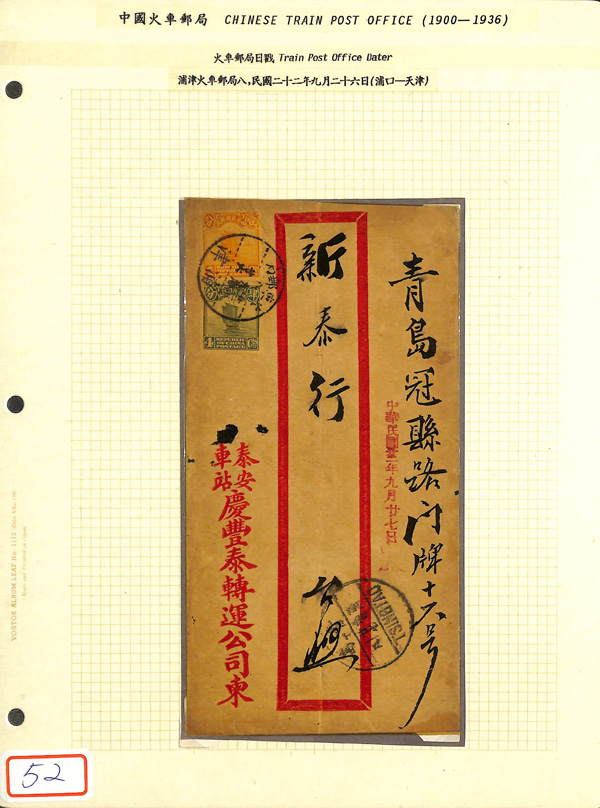 中國火車郵局 CHINESE TRAIN POST OFFICE (1900—1936)
火車郵局日戳 Train Post Office Dater
浦津火車郵局八,民國二十二年九月二十六日(浦口—天津)
青島冠縣路門牌十六号
中華民國 年九月廿七日
新泰行
4
REPUBLIC
OF CHINA
POSTAGE
津
TSINGTAO
泰安
車站
慶豐泰轉運公司柬
VOSTOK ALBUM LEAF No.
52